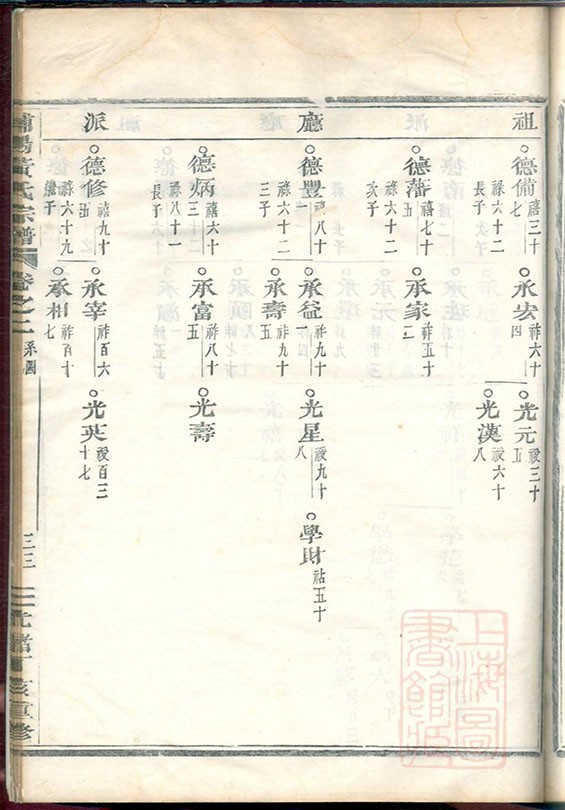 祖
廳
派
○德備 禧三十七
祿六十二長子
○承宏 祚六十四
○光元 祲三十五
○光漢 祲六十八
○德藩 禧七十五
祿六十二次子
○承家 祚五十二
○德豐 禧八十二
祿六十二三子
○承益 祚九十一
○光星 祲九十八
○學財 祜五十
○承壽 祚九十五
○德炳 禧六十三
祿八十一長子
○承富 祚八十五
○光壽
○德修 禧九十五
祿六十九繼子
○承宰 祚百六
○光英 祲百三十七
○承相 祚百十七
黃氏宗譜
卷之二
系圖
三三
光緒丁亥重修
上海圖書館藏